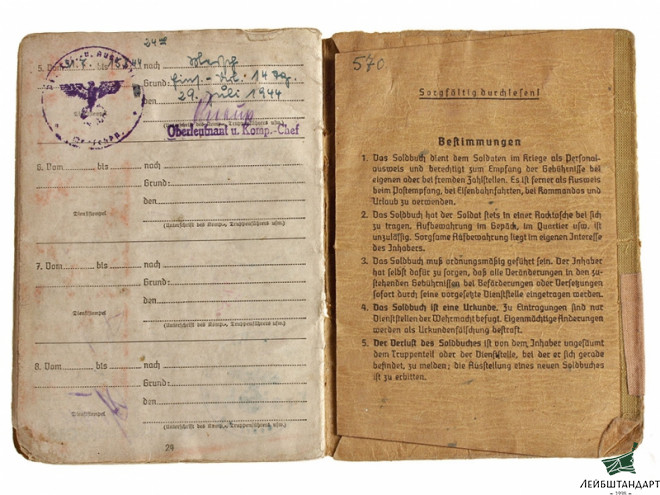 24
5. Vom bis 15.8.44 nach
Grund: 14 Tg.
den 29. Juli 1944
Oberleutnant u. Komp.-Chef
6. Vom bis nach
Grund:
den
Dienststempel
(Unterschrift des Komp., Truppenführers usw.)
7. Vom bis nach
Grund:
den
Dienststempel
(Unterschrift des Komp., Truppenführers usw.)
8. Vom bis nach
Grund:
den
Dienststempel
(Unterschrift des Komp., Truppenführers usw.)
24
570
Sorgfältig durchlesen!
Bestimmungen
1. Das Soldbuch dient dem Soldaten im Kriege als Personal-
ausweis und berechtigt zum Empfang der Gebührnisse bei
eigenen oder bei fremden Zahlstellen. Es ist ferner als Ausweis
beim Postempfang, bei Eisenbahnfahrten, bei Kommandos und
Urlaub zu verwenden.
2. Das Soldbuch hat der Soldat stets in einer Rocktasche bei sich
zu tragen. Aufbewahrung im Gepäck, im Quartier usw. ist
unzulässig. Sorgsame Aufbewahrung liegt im eigenen Interesse
des Inhabers.
3. Das Soldbuch muß ordnungsmäßig geführt sein. Der Inhaber
hat selbst dafür zu sorgen, daß alle Veränderungen in den zu-
stehenden Gebührnissen bei Beförderungen oder Versetzungen
sofort durch seine vorgesetzte Dienststelle eingetragen werden.
4. Das Soldbuch ist eine Urkunde. Zu Eintragungen sind nur
Dienststellen der Wehrmacht befugt. Eigenmächtige Änderungen
werden als Urkundenfälschung bestraft.
5. Der Verlust des Soldbuches ist von dem Inhaber ungesäumt
dem Truppenteil oder der Dienststelle, bei der er sich gerade
befindet, zu melden; die Ausstellung eines neuen Soldbuches
ist zu erbitten.
ЛЕЙБШТАНДАРТ